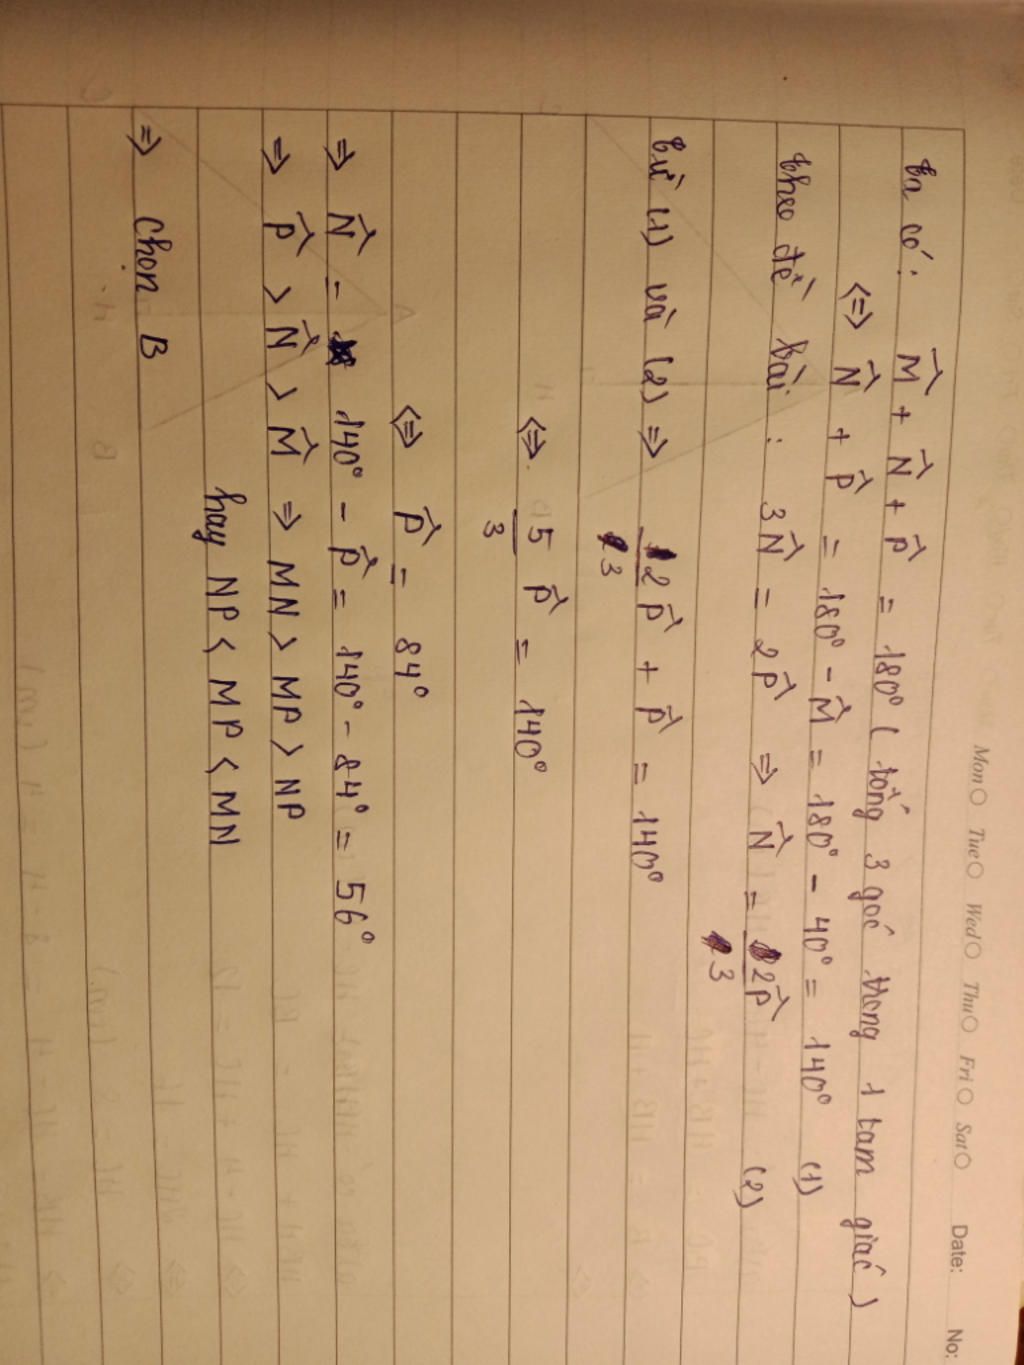 Mon Tue Wed Thu Fri Sat Date: No:
Ta có: M̂ + N̂ + P̂ = 180° ( tổng 3 góc trong 1 tam giác )
<=> N̂ + P̂ = 180° - M̂ = 180° - 40° = 140° (1)
theo đề bài : 3N̂ = 2P̂ => N̂ = 2P̂/3 (2)
từ (1) và (2) => 2P̂/3 + P̂ = 140°
<=> 5/3 P̂ = 140°
<=> P̂ = 84°
=> N̂ = 140° - P̂ = 140° - 84° = 56°
=> P̂ > N̂ > M̂ => MN > MP > NP
hay NP < MP < MN
=> Chọn B